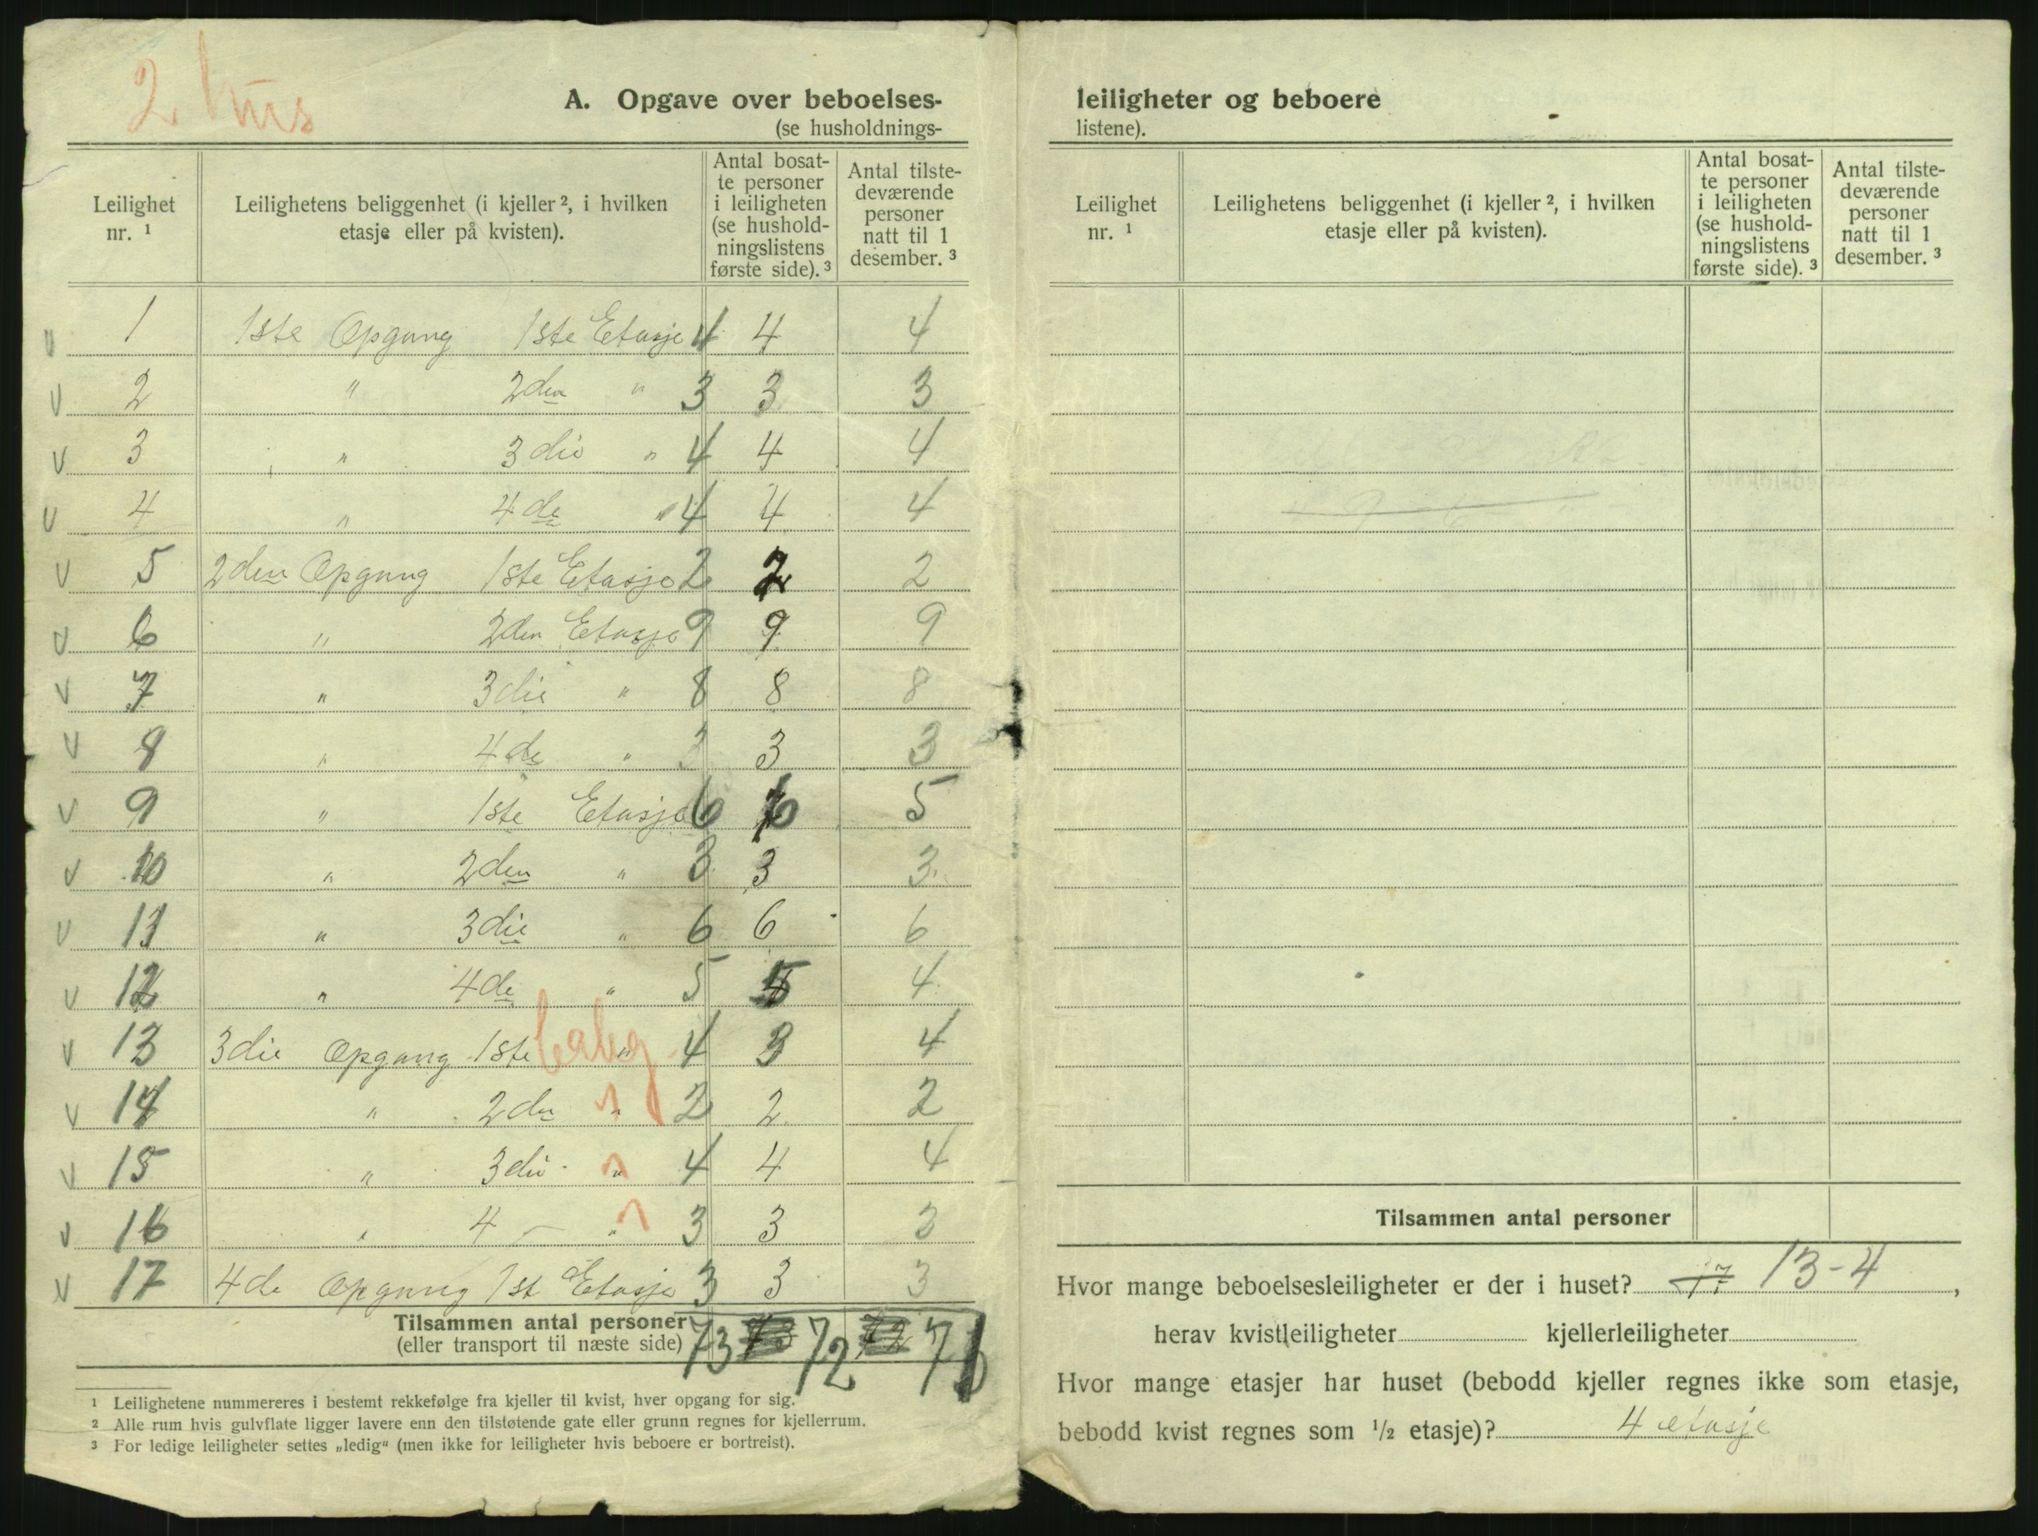 2 hus
A. Opgave over beboelses-
(se husholdnings-
Leilighet nr. ¹
Leilighetens beliggenhet (i kjeller ², i hvilken etasje eller på kvisten).
Antal bosat-
te personer
i leiligheten
(se hushold-
ningslistens
første side). ³
Antal tilste-
deværende
personer
natt til 1
desember. ³
1 1ste Opgang 1ste Etasje 4 4 4
2 " 2den " 3 3 3
3 " 3die " 4 4 4
4 " 4de " 4 4 4
5 2den Opgang 1ste Etasje 2 2 2
6 " 2den Etasje 9 9 9
7 " 3die " 8 8 8
8 " 4de " 3 3 3
9 " 1ste Etasje 6 6 5
10 " 2den " 3 3 3
11 " 3die " 6 6 6
12 " 4de " 5 5 4
13 3die Opgang 1ste " 4 3 4
14 " 2den " 2 2 2
15 " 3die " 4 4 4
16 " 4 — " 3 3 3
17 4de Opgang 1st Etasje 3 3 3
Tilsammen antal personer
(eller transport til næste side) 73 72 71
¹ Leilighetene nummereres i bestemt rekkefølge fra kjeller til kvist, hver opgang for sig.
² Alle rum hvis gulvflate ligger lavere enn den tilstøtende gate eller grunn regnes for kjellerrum.
³ For ledige leiligheter settes „ledig" (men ikke for leiligheter hvis beboere er bortreist).
leiligheter og beboere
listene).
Leilighet nr. ¹
Leilighetens beliggenhet (i kjeller ², i hvilken etasje eller på kvisten).
Antal bosat-
te personer
i leiligheten
(se hushold-
ningslistens
første side). ³
Antal tilste-
deværende
personer
natt til 1
desember. ³
Tilsammen antal personer
Hvor mange beboelsesleiligheter er der i huset? 17 13-4,
herav kvistleiligheter kjellerleiligheter
Hvor mange etasjer har huset (bebodd kjeller regnes ikke som etasje,
bebodd kvist regnes som ½ etasje)? 4 etasje